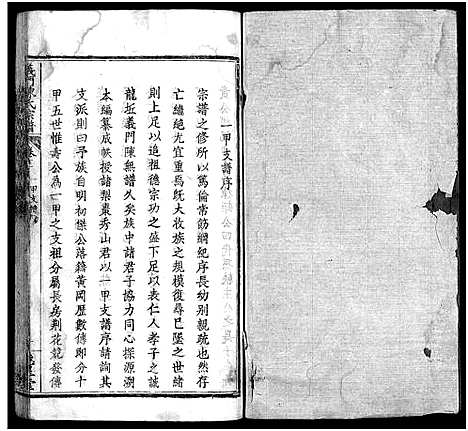 一甲支譜序
宗譜之修所以篤倫常飭綱紀序長幼别親疏也然存
亡繼絕尤宜重焉旣大收族之規模復尋已墜之世緒
則上足以追祖德宗功之盛下足以表仁人孝子之誠
龍坵義門陳無譜久矣族中諸君子協力同心探源溯
本編纂成帙授諸梨棗秀山君以一甲支譜序請詢其
支派則曰予族自明初傑公落籍黃岡歷數傳即分十
甲五世惟壽公為一甲之支祖分屬長房荆花競發傳
義門陳氏宗譜
卷
一甲支譜序